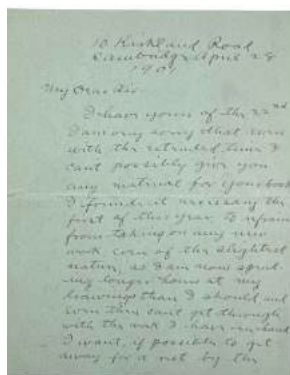 10 Kirkland Road
Cambridge April 28
190
My Dear Sir.
I have yours of the 22nd
I am very sorry that even
with the extended time I
cant possibly give you
any material for your book
I found it necessary the
first of this year to refrain
from taking on any new
work even of the slightest
nature, as I am now spend
ing longer hours at my
drawings than I should and
even then cant get through
with the work I have in hand
I want if possible to get
away for a rest by the